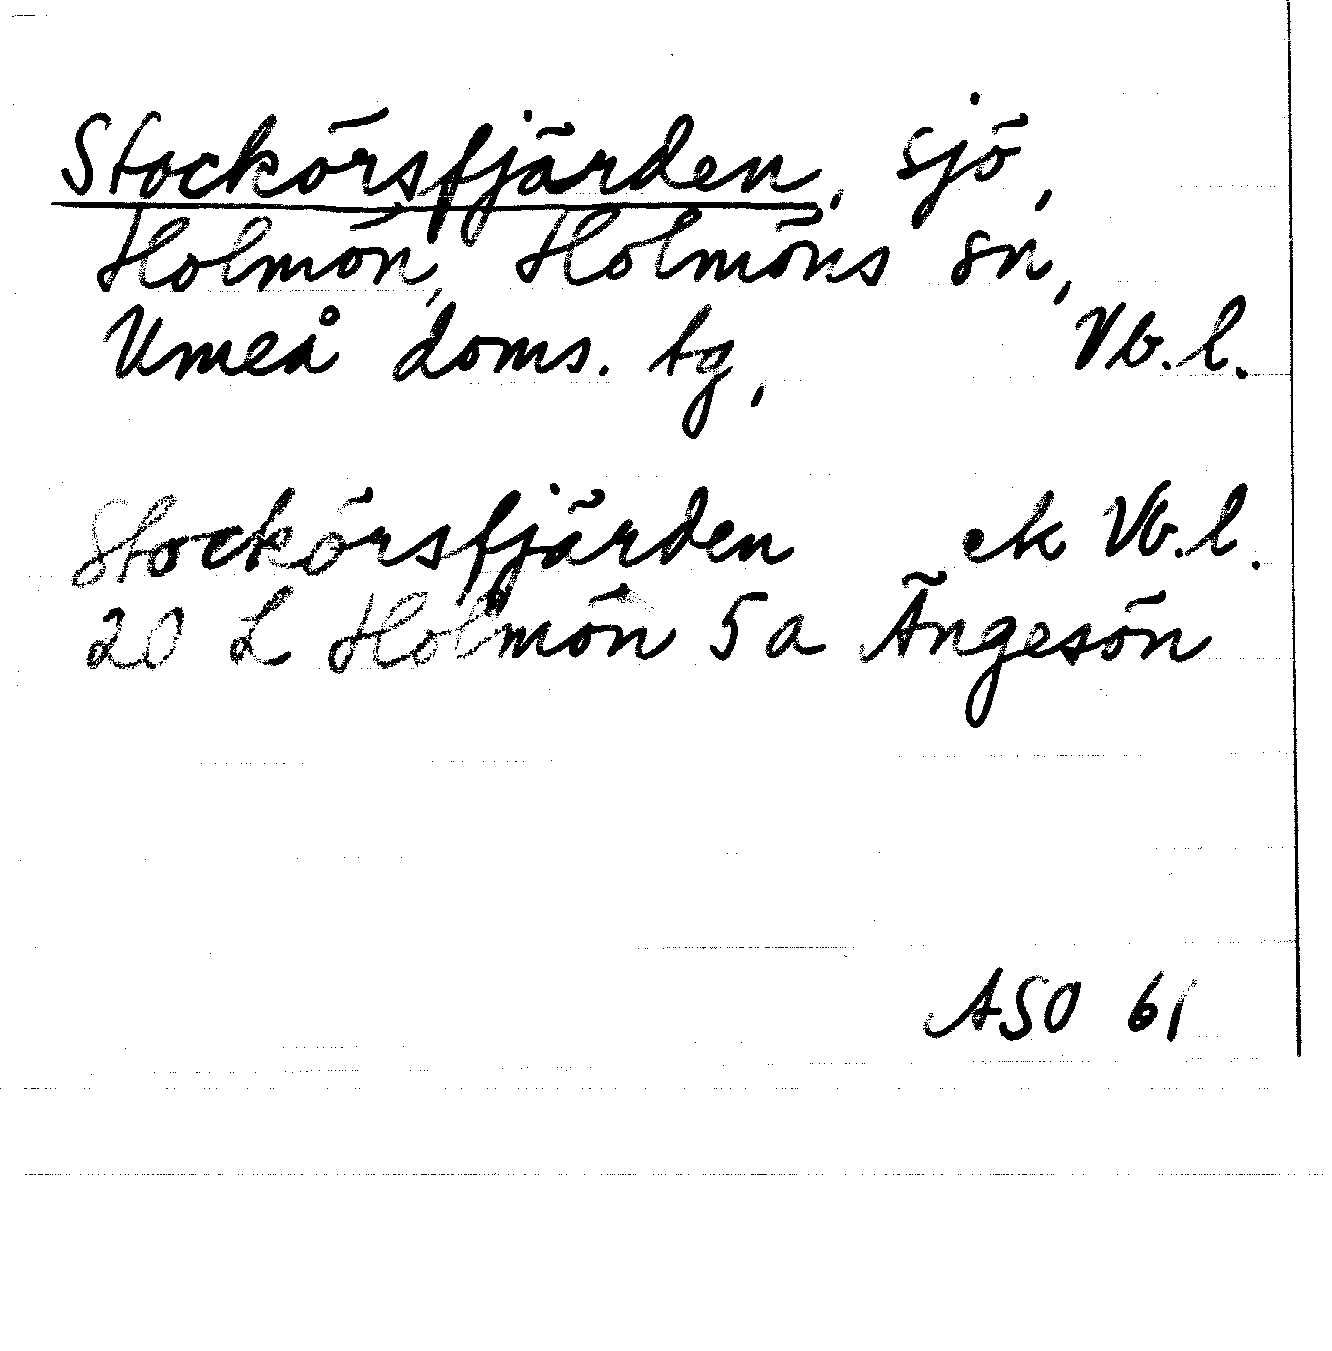 Stockörsfjärden, sjö,
Holmön, Holmöns sn,
Umeå doms. tg, Vb. l.
Stockörsfjärden ek Vb. l.
20 L Holmön 5a Ängesön
ASO 61